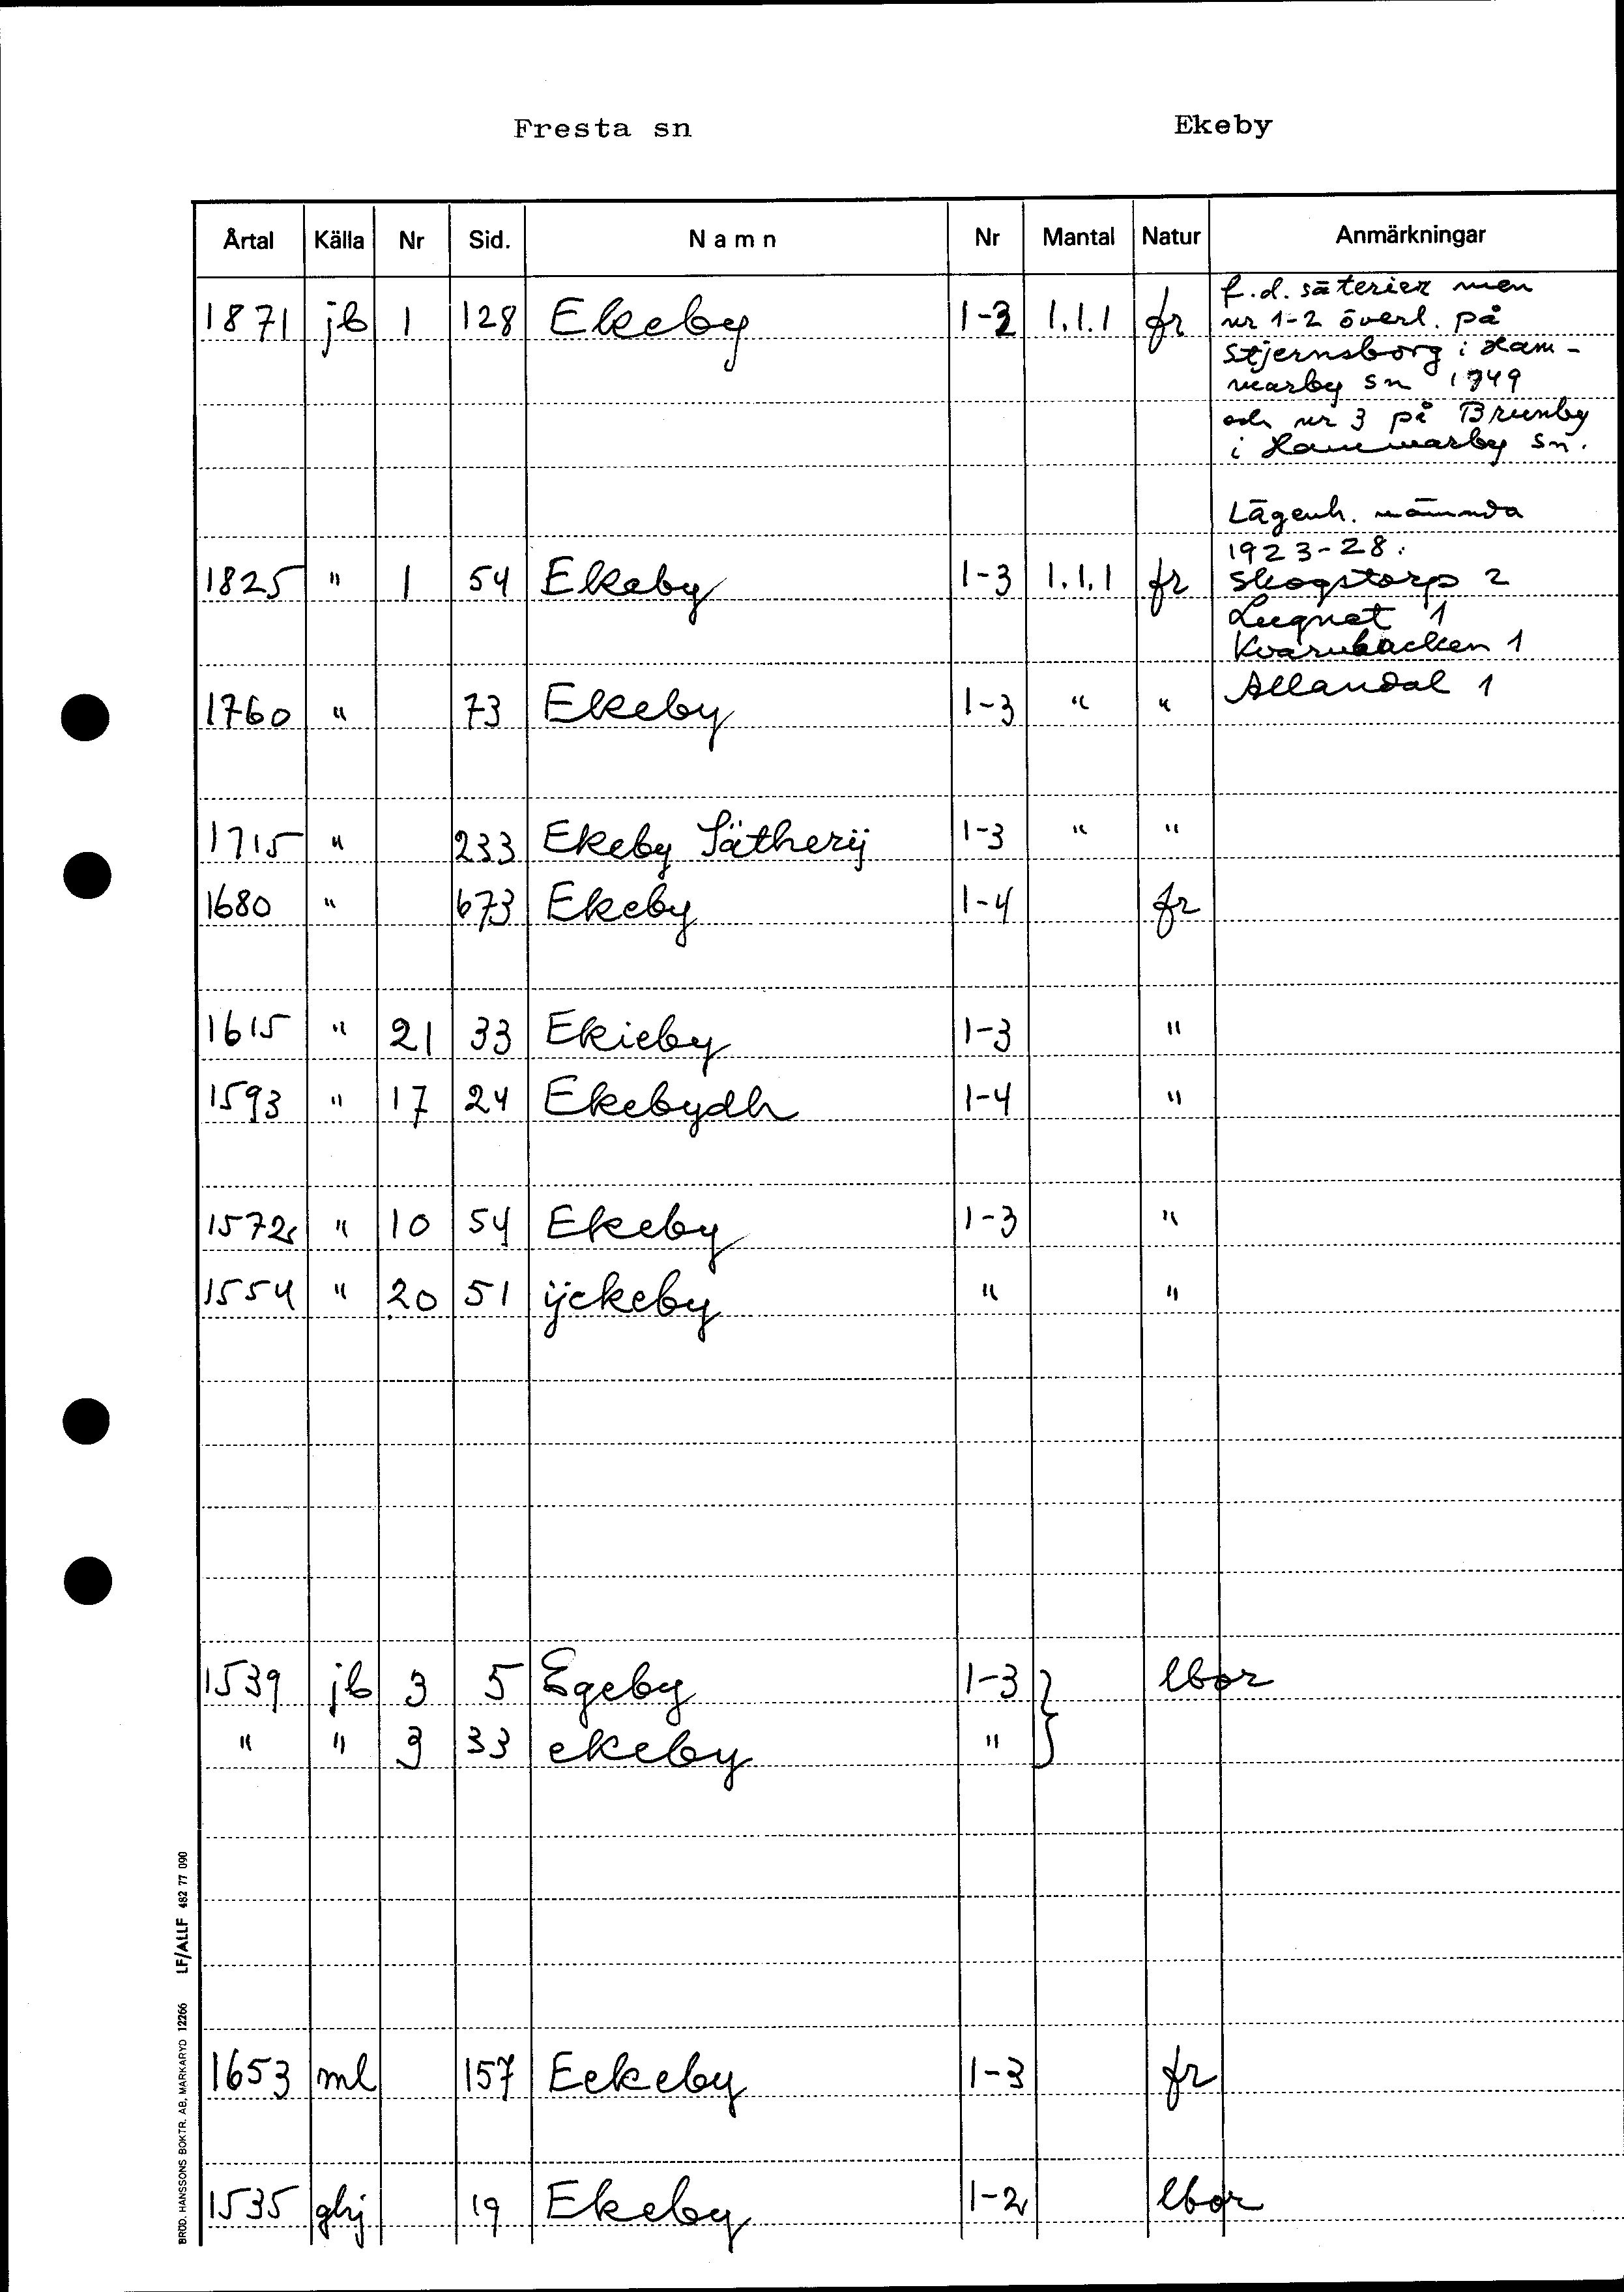 Fresta sn Ekeby
Årtal Källa Nr Sid. Namn Nr Mantal Natur Anmärkningar
1871 jb 1 128 Ekeby 1-3 1.1.1 fr
f.d. säterier men
nr 1-2 överl. på
Stjernsborg i Ham-
marby sn 1749
och nr 3 på Brunby
i Hammarby sn.
Lägenh. nämnda
1923-28:
1825 " 1 54 Ekeby 1-3 1.1.1 fr Skogstorp 2
Lugnet 1
Kvarnbacken 1
1760 " 73 Ekeby 1-3 " " Allandal 1
1715 " 233 Ekeby Sätherij 1-3 " "
1680 " 673 Ekeby 1-4 fr
1615 " 21 33 Ekieby 1-3 "
1593 " 17 24 Ekebydh 1-4 "
1572 " 10 54 Ekeby 1-3 "
1554 " 20 51 ÿckeby " "
1539 jb 3 5 Egeby 1-3 } lbor
" " 3 33 ekeby "
1653 ml 157 Eekeby 1-3 fr
1535 ghj 19 Ekeby 1-2 lbor
BRÖD. HANSSONS BOKTR. AB, MARKARYD 12266 LF/ALLF 482 77 090